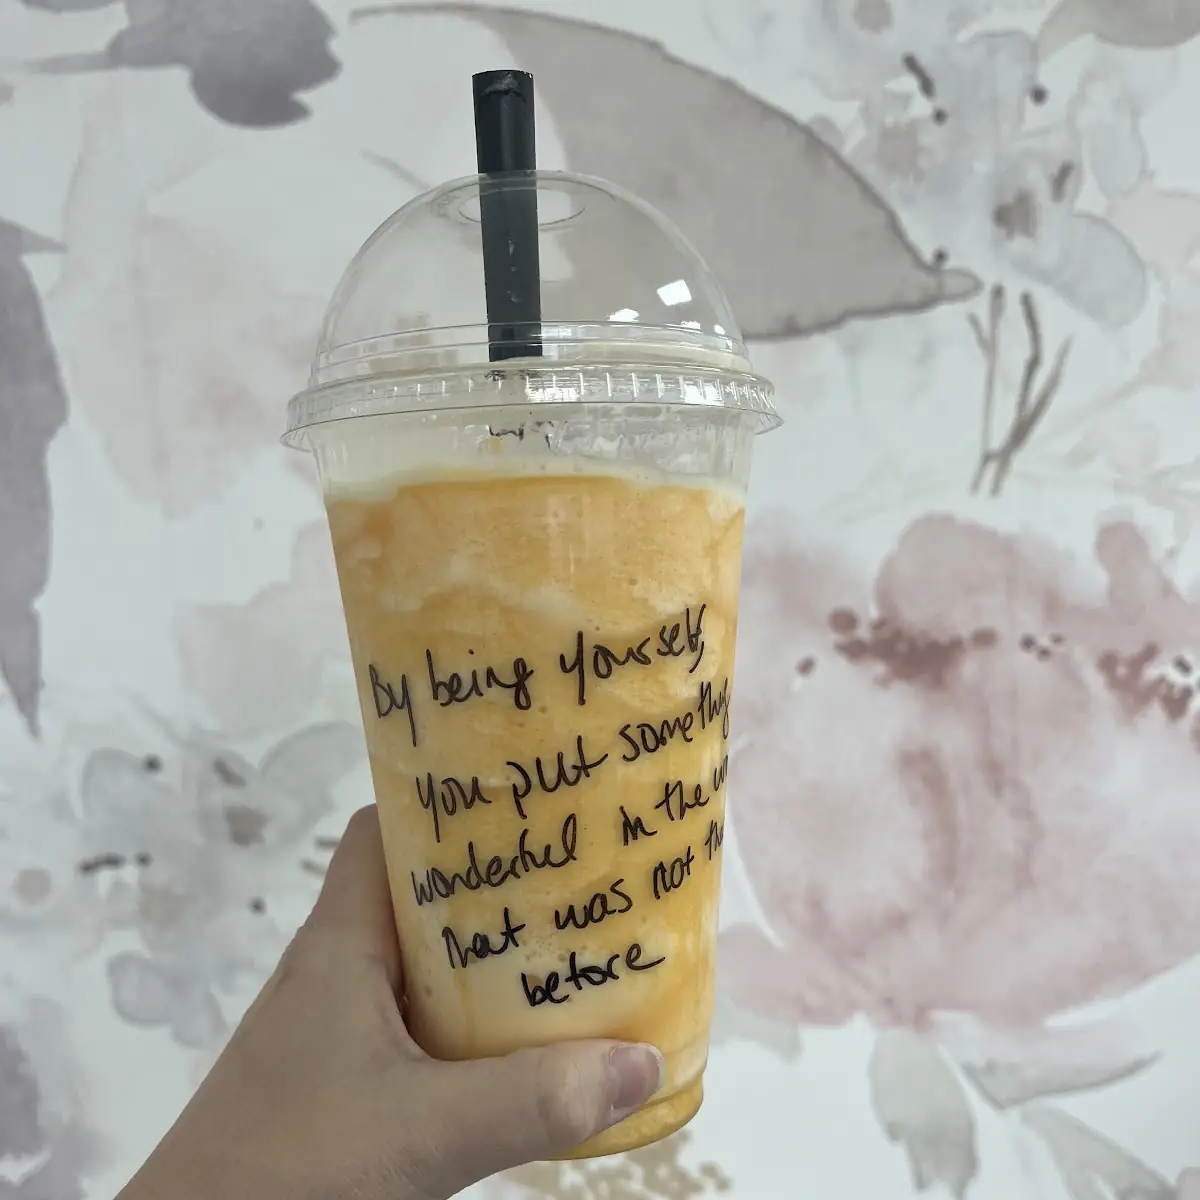 By being yourself,
you put somethg
wonderful in the wo
that was not the
before